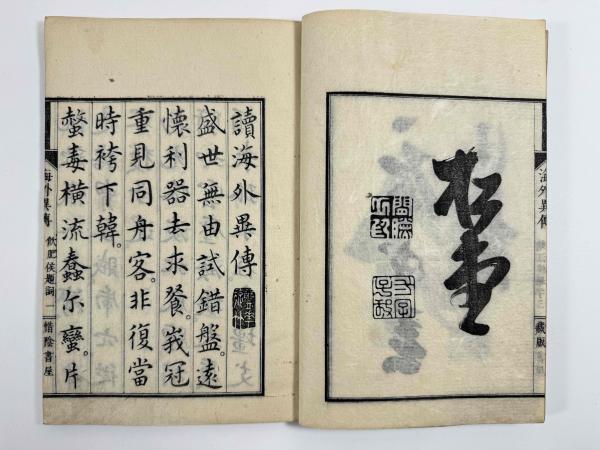 松堂
海外異傳
藏版
讀海外異傳
盛世無由試錯盤。遠
懷利器去求餐。峩冠
重見同舟客。非復當
時袴下韓。
螫毒橫流蠢尓蠻。片
海外異傳
飫肥侯題詞
一
惜陰書屋